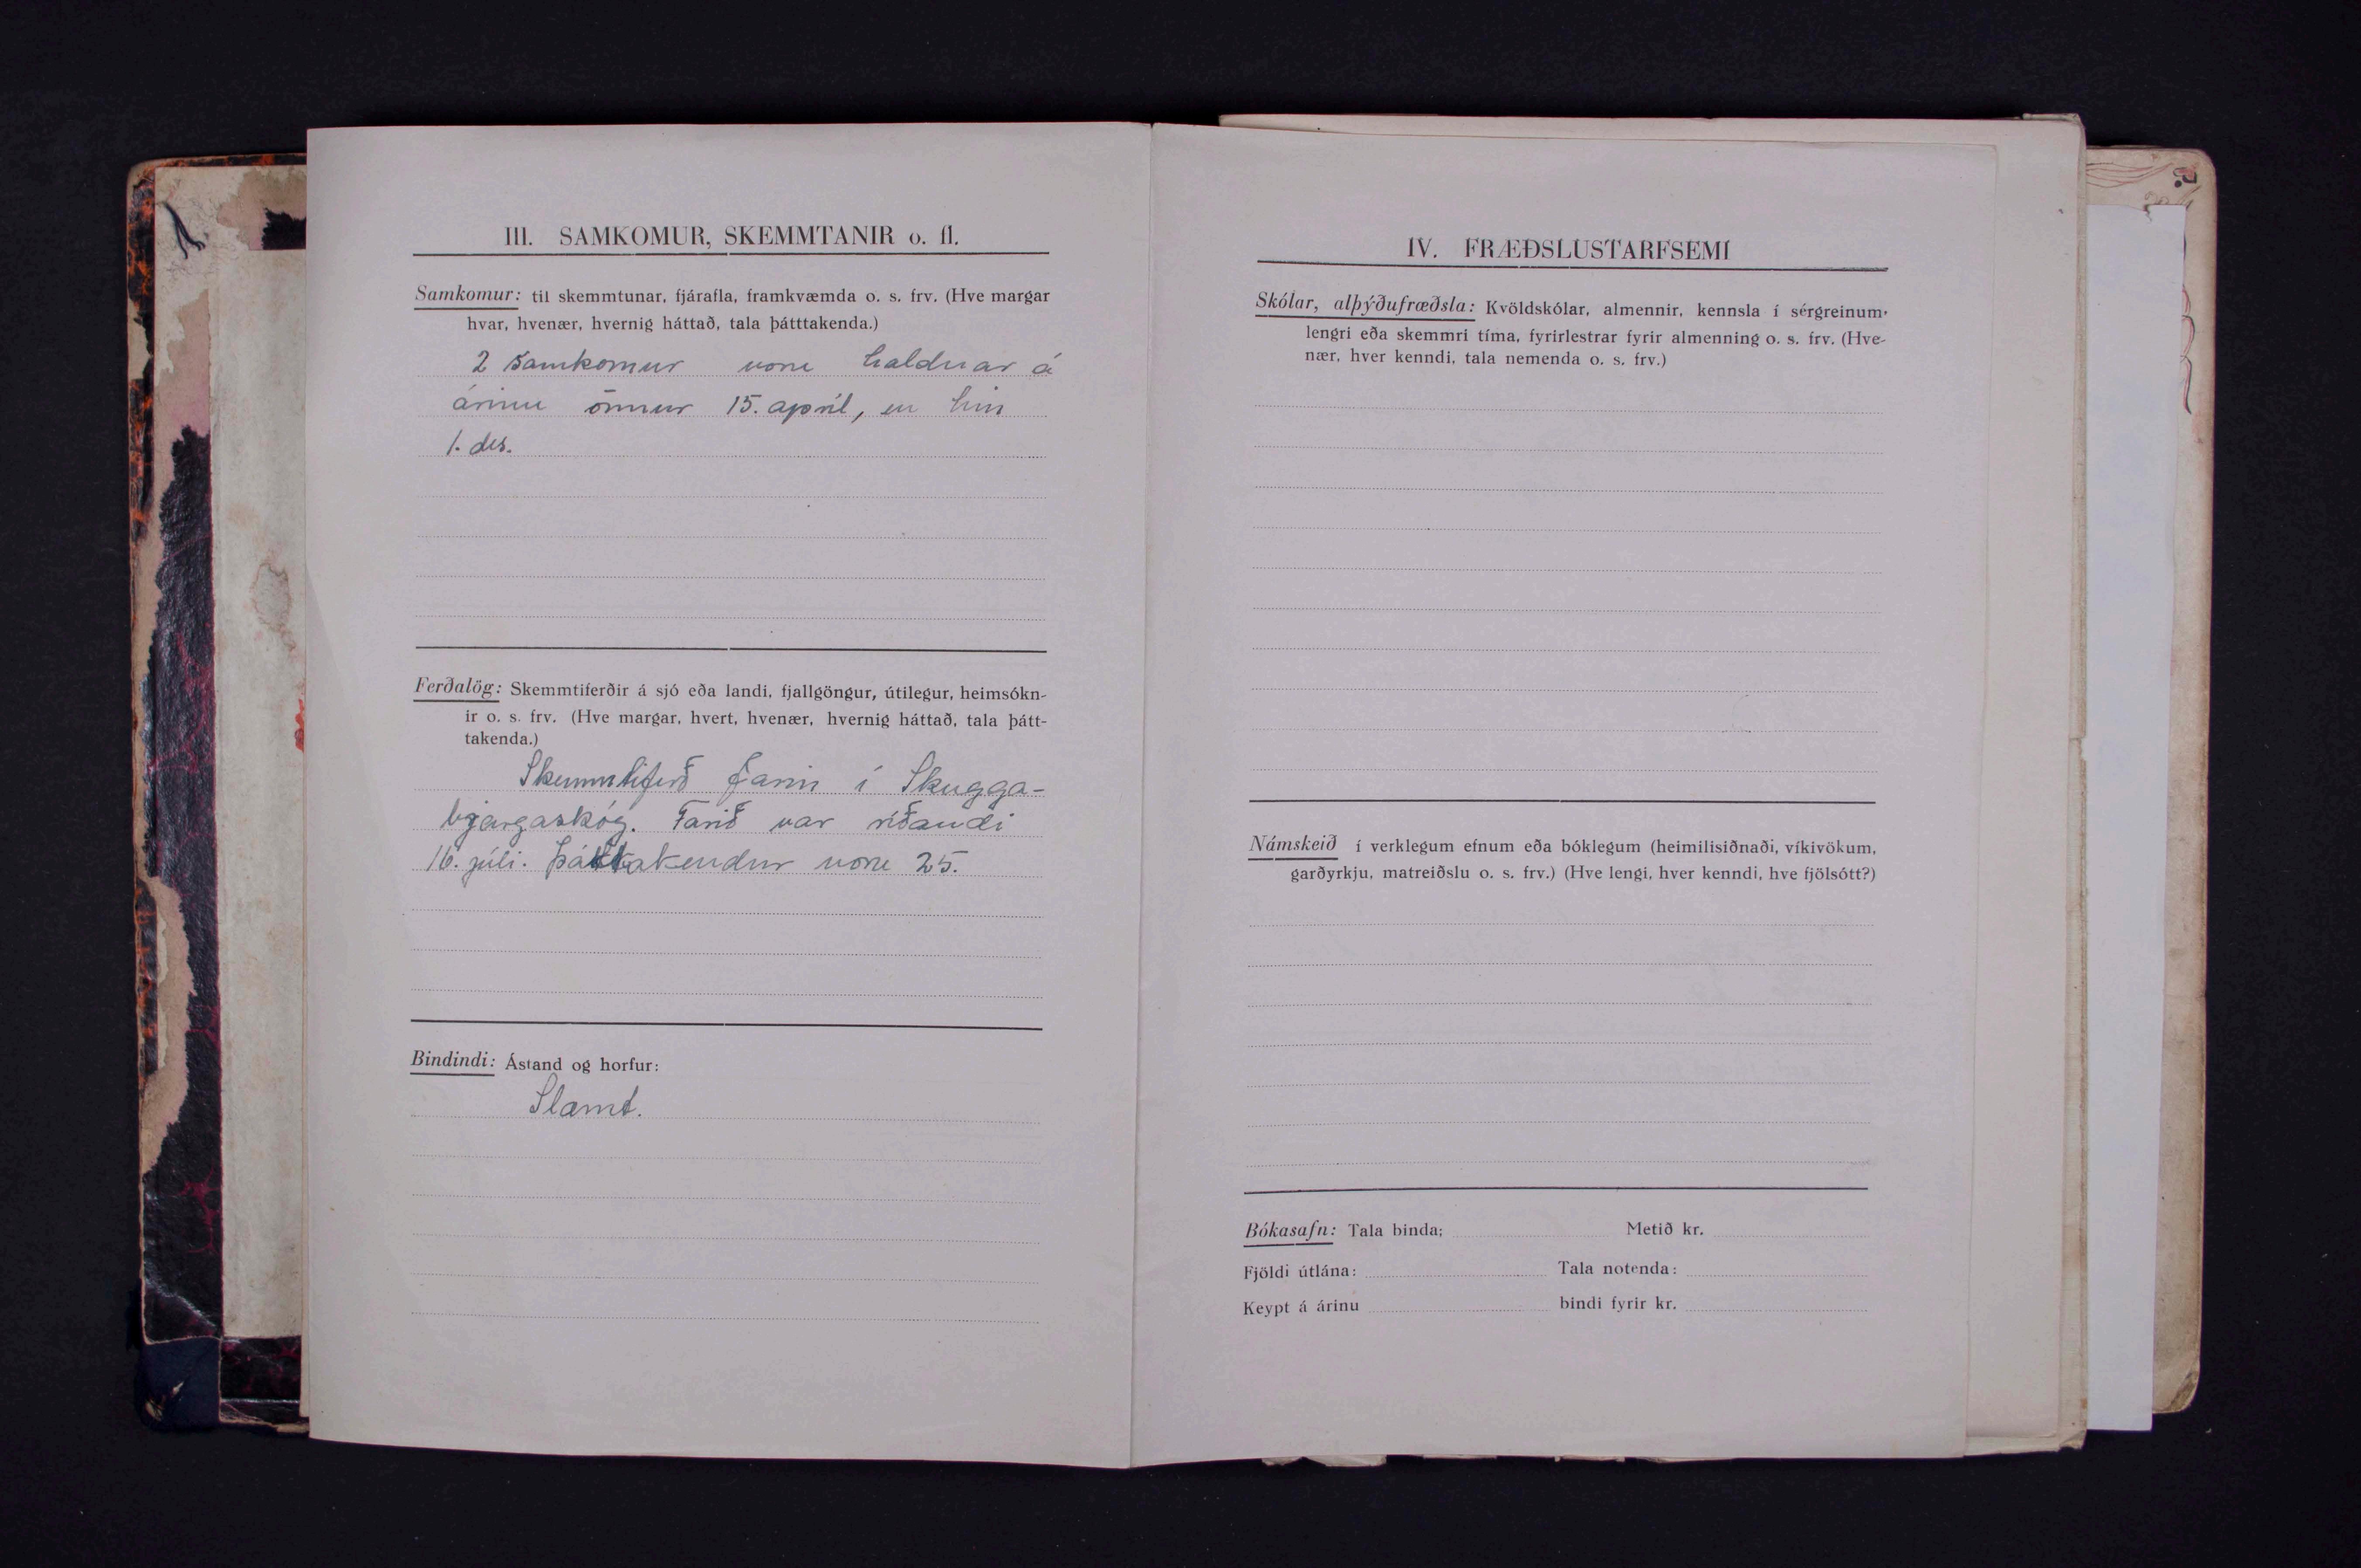 III. SAMKOMUR, SKEMMTANIR o. fl.
Samkomur: til skemmtunar, fjárafla, framkvæmda o. s. frv. (Hve margar
hvar, hvenær, hvernig háttað, tala þátttakenda.)
2 samkomur voru haldnar á
árinu önnur 15. apríl, en hin
1. des.
Ferðalög: Skemmtiferðir á sjó eða landi, fjallgöngur, útilegur, heimsókn-
ir o. s. frv. (Hve margar, hvert, hvenær, hvernig háttað, tala þátt-
takenda.)
Skemmtiferð farin í Skugga-
bjargaskóg. Farið var ríðandi
16. júlí. Þátttakendur voru 25.
Bindindi: Ástand og horfur:
Slæmt.
IV. FRÆÐSLUSTARFSEMI
Skólar, alþýðufræðsla: Kvöldskólar, almennir, kennsla í sérgreinum,
lengri eða skemmri tíma, fyrirlestrar fyrir almenning o. s. frv. (Hve-
nær, hver kenndi, tala nemenda o. s. frv.)
Námskeið í verklegum efnum eða bóklegum (heimilisiðnaði, víkivökum,
garðyrkju, matreiðslu o. s. frv.) (Hve lengi, hver kenndi, hve fjölsótt?)
Bókasafn: Tala binda; Metið kr.
Fjöldi útlána: Tala notenda:
Keypt á árinu bindi fyrir kr.